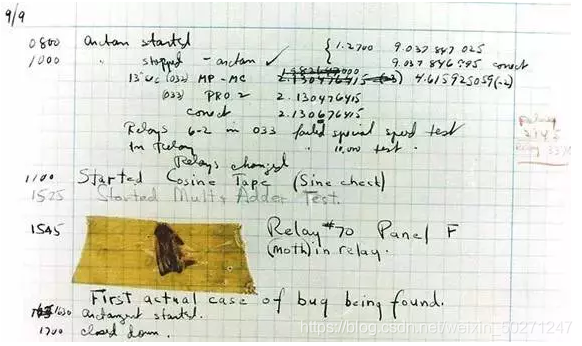 9/9
0800 antan started { 1.2700 9.037 847 025
1000 " stopped - antan ✓ 9.037 846 995 conect
13"uc (032) MP - MC 2.130476415 4.615925059(-2)
(033) PRO 2 2.130476415
conect 2.130676415
Relays 6-2 in 033 failed special speed test
In Relay " 10,000 test .
Relays changed
1100 Started Cosine Tape (Sine check)
1525 Started Mult+ Adder Test.
1545 Relay #70 Panel F
(moth) in relay.
First actual case of bug being found.
1630 antangent started.
1700 closed down.
Relay
2145
Relay 3370
https://blog.csdn.net/weixin_50271247